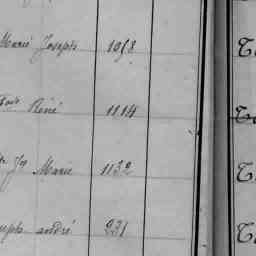 Marie Joseph 1058
René 1114
Jh Marie 1132
Joseph andré 231